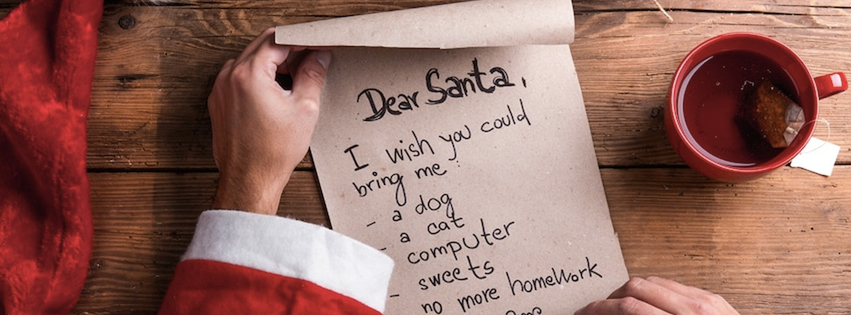 Dear Santa,
I wish you could
bring me:
- a dog
- a cat
- computer
- sweets
no more homework